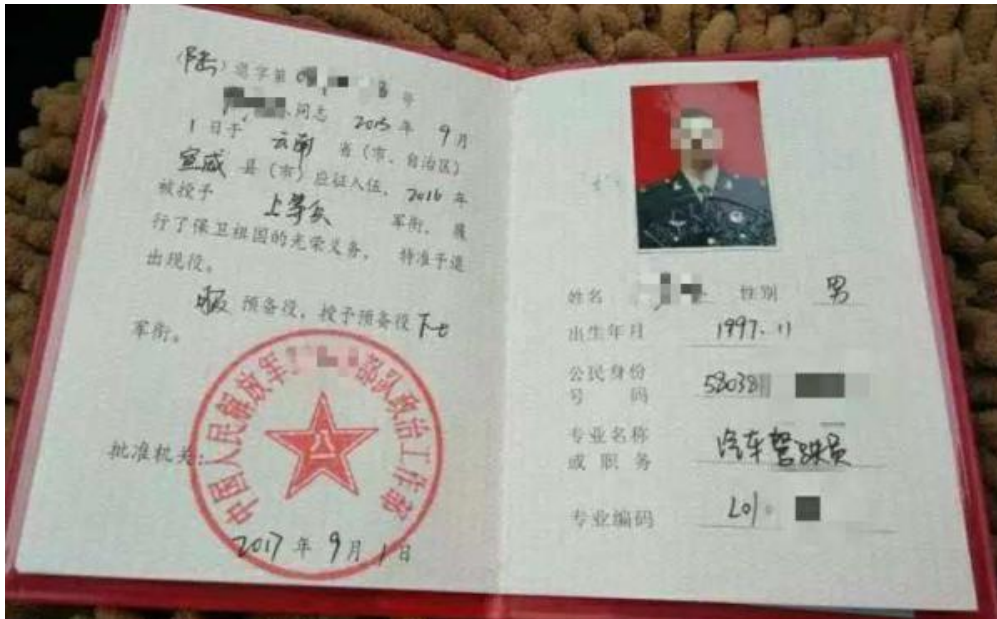 (陆)退字第 号
同志 2015 年 9 月
1 日于 云南 省(市、自治区)
宣威 县(市)应征入伍,2016 年
被授予 上等兵 军衔,履
行了保卫祖国的光荣义务,特准予退
出现役。
服 预备役,授予预备役下士
军衔。
批准机关:
中国人民解放军 部队政治工作部
2017 年 9 月 1 日
姓名 性别 男
出生年月 1997.11
公民身份
号 码
专业名称
或职务 汽车驾驶员
专业编码